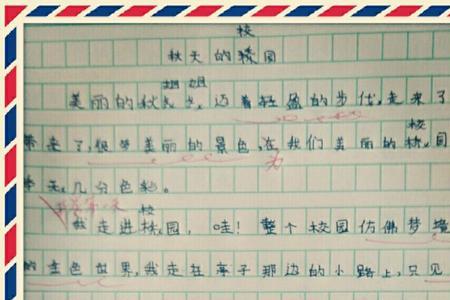 校
秋天的校园
姐姐
美丽的秋 迈着轻盈的步伐,走来了
带来了,很多美丽的景色,在我们美丽的 园
校
为
天,几分色彩。
校
我走进 园,哇!整个校园仿佛梦境
的金色世界,我走在亭子那边的小路上,只见